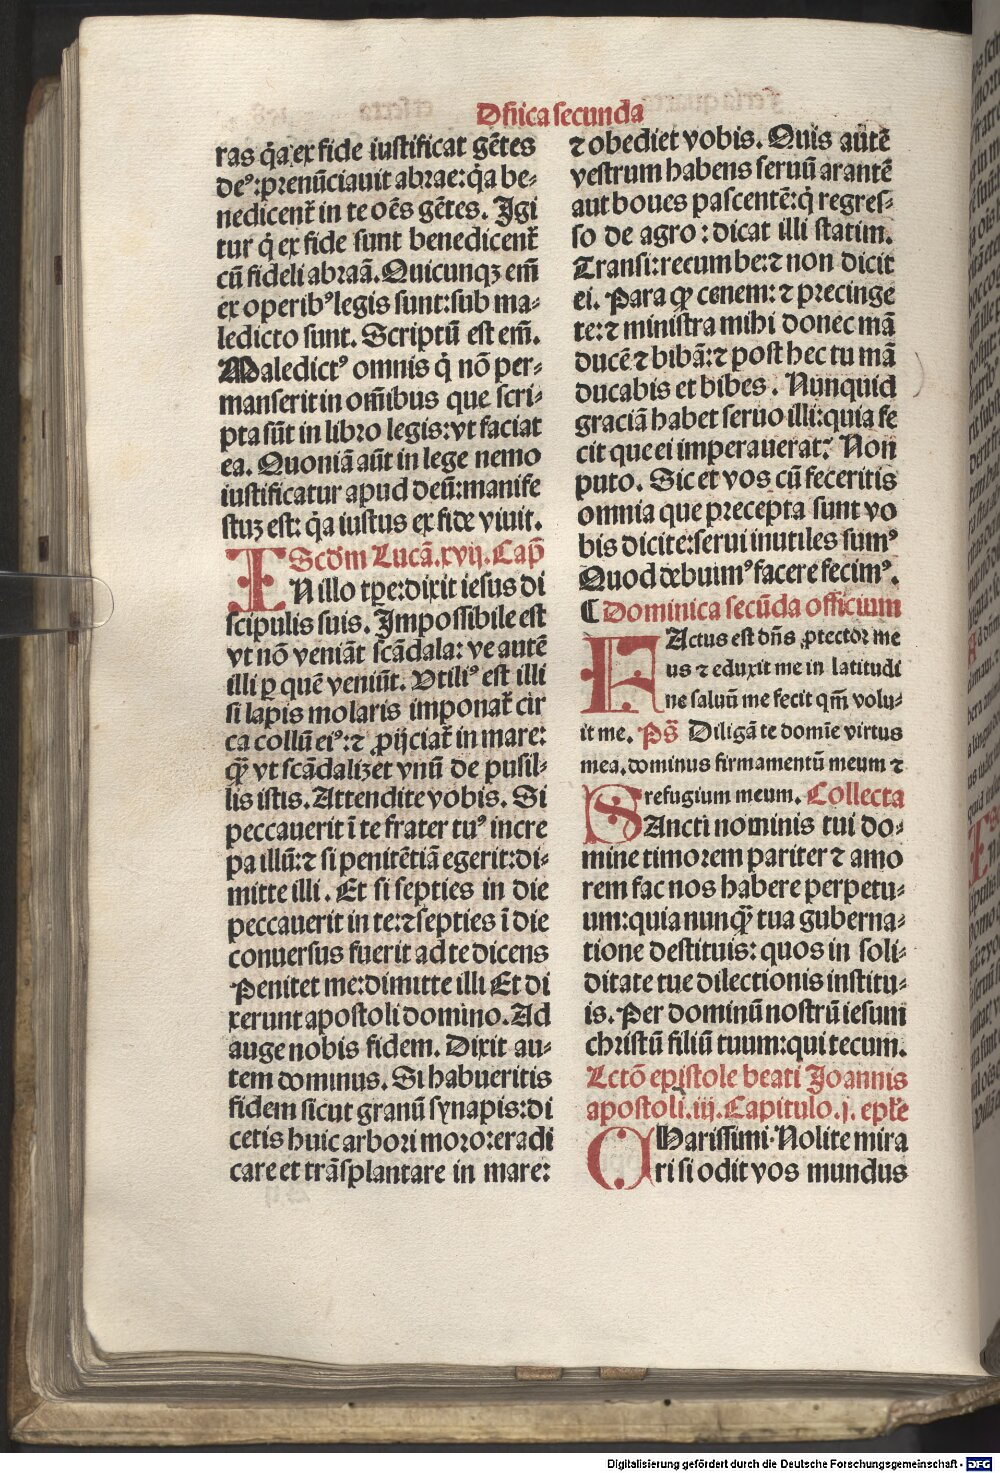 Dn̄ica secunda
ras q̄a ex fide iustificat gētes
deꝰ: prenūciauit abrae: q̄a be-
nedicent᷑ in te oēs gētes. Igi
tur q̄ ex fide sunt benedicent᷑
cū fideli abraā. Quicunqꝫ em̄
ex operibꝰ legis sunt: sub ma-
ledicto sunt. Scriptū est em̄.
Maledictꝰ omnis q̄ nō per-
manserit in om̄ibus que scri-
pta sūt in libro legis: vt faciat
ea. Quoniā aūt in lege nemo
iustificatur apud deū: manife
stuꝫ est: q̄a iustus ex fide viuit.
Scd̄m Lucā. xvij. Cap̄
IN illo tp̄e: dixit iesus di
scipulis suis. Impossibile est
vt nō veniāt scādala: ve autē
illi ꝑ quē veniūt. Vtiliꝰ est illi
si lapis molaris imponat᷑ cir
ca collū eiꝰ: ⁊ ꝓijciat᷑ in mare:
qꝫ̄ vt scādalizet vnū de pusil-
lis istis. Attendite vobis. Si
peccauerit ī te frater tuꝰ incre
pa illū: ⁊ si penitētiā egerit: di-
mitte illi. Et si septies in die
peccauerit in te: ⁊ septies ī die
conuersus fuerit ad te dicens
Penitet me: dimitte illi Et di
xerunt apostoli domino. Ad
auge nobis fidem. Dixit au-
tem dominus. Si habueritis
fidem sicut granū synapis: di
cetis huic arbori moro: eradi
care et trāsplantare in mare:
⁊ obediet vobis. Quis autē
vestrum habens seruū arantē
aut boues pascentē: q̄ regres-
so de agro: dicat illi statim.
Transi: recumbe: ⁊ non dicit
ei. Para qꝫ̄ cenem: ⁊ precinge
te: ⁊ ministra mihi donec mā
ducē ⁊ bibā: ⁊ post hec tu mā
ducabis et bibes. Nunquid
graciā habet seruo illi: quia fe
cit que ei imperauerat? Non
puto. Sic et vos cū feceritis
omnia que precepta sunt vo
bis dicite: serui inutiles sumꝰ
Quod debuimꝰ facere fecimꝰ.
¶ Dominica secūda officium
FActus est dn̄s ꝓtector me
us ⁊ eduxit me in latitudi
ne saluū me fecit qm̄ volu-
it me. Ps̄ Diligā te domīe virtus
mea. dominus firmamentū meum ⁊
refugium meum. Collecta
SAncti nominis tui do-
mine timorem pariter ⁊ amo
rem fac nos habere perpetu-
um: quia nunqꝫ̄ tua guberna-
tione destituis: quos in soli-
ditate tue dilectionis institu-
is. Per dominū nostrū iesum
christū filiū tuum: qui tecum.
Lctō epistole beati Joannis
apostoli. iij. Capitulo. j. epl̄e
CHarissimi. Nolite mira
ri si odit vos mundus
Digitalisierung gefördert durch die Deutsche Forschungsgemeinschaft - DFG